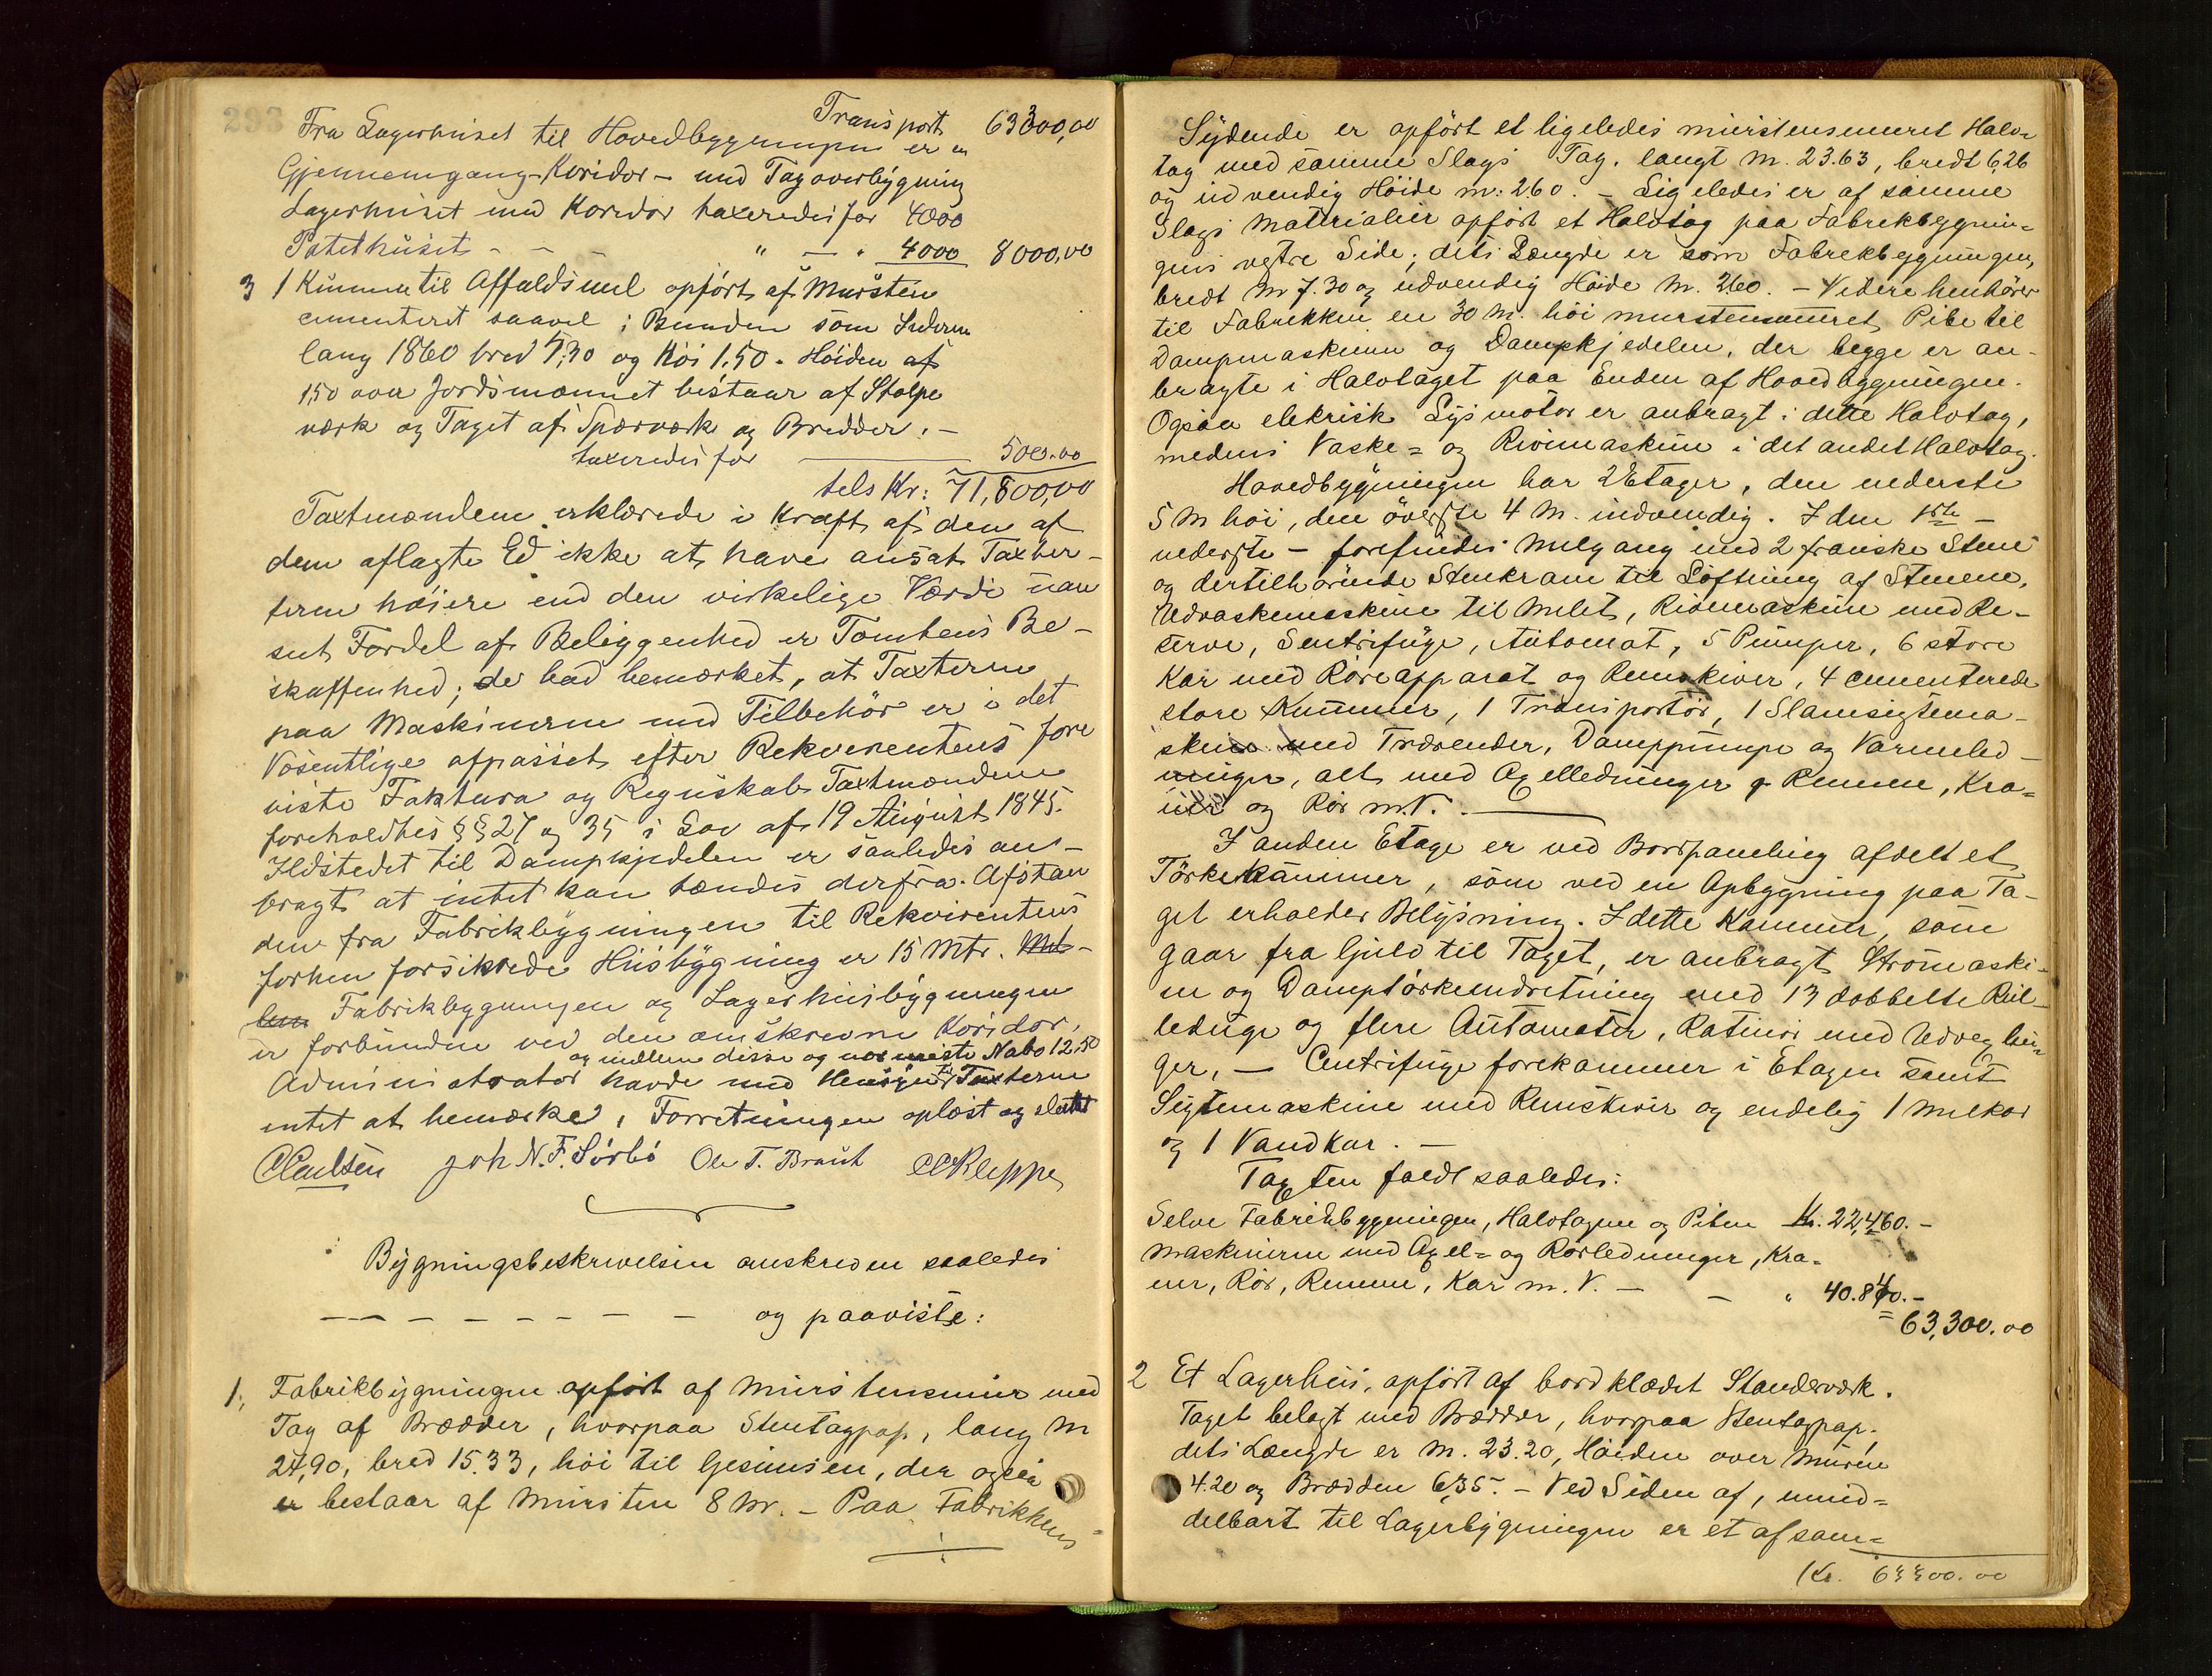 Transport 63300,00
Fra Lagerhuset til Hovedbygningen er en
Gjennemgang-Koridor - med Tagoverbygning
Lagerhuset med Koridor taxeredes for 4000
Potethuset - - " — " 4000 8000,00
3 1 Kumme til Affaldsmel opført af Mursten
cementeret saavel i Bunden som Siderne
lang 1860 bred 7,30 og Høi 1,50. Høiden af
1,50 over Jordsmonnet bestaar af Stolpe
værk og Taget af Spærværk og Brædder. -
taxeredes for — 500.00
tels Kr: 71,800,00
Taxtmændene erklærede i Kraft af den af
dem aflagte Ed ikke at have ansat Taxter-
terne høiere end den virkelige Værdi uan
seet Fordel af Beliggenhed er Tomtens Be-
skaffenhed; de bad bemærket, at Taxterne
paa Maskinerne med Tilbehör er i det
Væsentlige afpasset efter Rekvirentens fore
viste Faktura og Regnskab. Taxtmændene
foreholdtes §§ 27 og 35 i Lov af 19 August 1845.
Ildstedet til Dampkjedelen er saaledes an-
bragt at intet kan tændes derfra. Afstan
den fra Fabrikbygningen til Rekvirentens
forhen forsikrede Husbygning er 15 Mtr. Mel-
lem Fabrikbygningen og Lagerhusbygningen
er forbunden ved den omskrevne Koridor,
og mellem disse og nærmeste Nabo 12,50
Administrator havde med Hensyn til Taxterne
intet at bemærke, Forretningen oplæst og sluttet
Joh N. F. Sörbö Ole T. Braut
Bygningsbeskrivelsen omskreven saaledes
— — — — — — — — og paaviste:
1, Fabrikbygningen opført af Murstensmur med
Tag af Brædder, hvorpaa Stentagpap, lang M
27,90, bred 15.33, höi til Gesimsen, der ogsaa
er bestaar af Mursten 8 M. - Paa Fabrikkens
Sydende er opført et ligeledes murstensmuret Halv-
tag med samme Slags Tag. langt M. 23.63, bredt 6,26
og udvendig Höide M. 2.60. - Ligeledes er af samme
Slags Materialier opført et Halvtag paa Fabrekbygnin-
gens vestre Side; dets Længde er som Fabrekbygningen,
bredt M 7.30 og udvendig Høide M. 2.60. - Videre henhører
til Fabrikken en 30 M. höi murstensmuret Pibe til
Dampmaskinen og Dampkjedelen, der begge er an-
bragte i Halvtaget paa Enden af Hovedbygningen.
Ogsaa elekrisk Lysmotor er anbragt i dette Halvtag,
medens Vaske- og Rivemaskine i det andet Halvtag.
Hovedbygningen har 2 Etager, den nederste
5 M höi, den överste 4 M. indvendig. I den 1ste -
nederste - forefindes Melgang med 2 franske Stene
og dertilhörende Stenkran til Löftning af Stenene,
Udvaskemaskine til Melet, Rivemaskine med Re-
serve, Sentrifuge, Automat, 5 Pumper, 6 store
Kar med Röreapparat og Remskiver, 4 cementerede
store Kummer, 1 Transportör, 1 Slamsigtema-
skine med Trærender, Damppumpe og Varmeled-
ninger, alt med Axelledninger og Remme, Kra-
ner og Rör m.V. —
I anden Etage er ved Bordpaneling afdelt et
Törkekammer, som ved en Opbygning paa Ta-
get erholder Belysning. I dette Kammer, som
gaar fra Gulv til Taget, er anbragt
og Damptörkeindretning med 13 dobbelte Rul-
leduge og flere Automater, med
ger, — Centrifuge forekommer i Etagen samt
Sigtemaskine med Remskiver og endelig 1 Melkar
og 1 Vandkar. —
Taxten faldt saaledes:
Selve Fabrikbygningen, Halvtagene og Piben Kr. 22,460.-
Maskinerne med Axel- og Rörledninger, Kra-
ner, Rör, Remme, Kar m. V. — - " 40.840.-
= 63,300.00
2 Et Lagerhus, opført af bordklædt Standerværk.
Taget belagt med Brædder, hvorpaa Stentagpap.
dets Længde er M. 23.20, Høiden over Muren
4.20 og Bredden 6,35. - Ved Siden af, umid-
delbart til Lagerbygningen er et af sam-
Kr. 63300.00